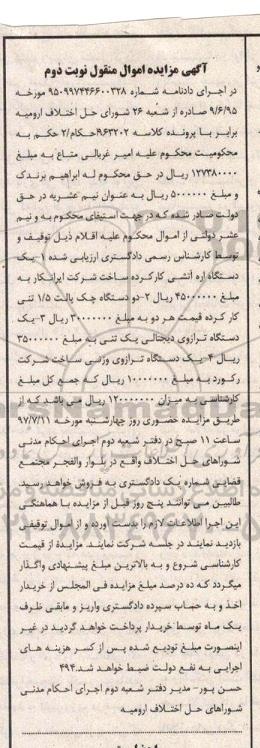 آگهی مزایده اموال منقول نوبت دوم
در اجرای دادنامه شماره ۹۵۰۹۹۷۴۴۶۶۰۰۳۲۸ مورخه
۹/۶/۹۵ صادره از شعبه ۲۶ شورای حل اختلاف ارومیه
برابر با پرونده کلاسه ۹۶۳۲۰۲احکام/۲ حکم به
محکومیت محکوم علیه امیر غربالی متاع به مبلغ
۱۲۷۳۸۰۰۰۰ ریال در حق محکوم له ابراهیم برندک
و مبلغ ۵۰۰۰۰۰۰ ریال به عنوان نیم عشریه در حق
دولت صادر شده که در جهت استیفای محکوم به و نیم
عشر دولتی از اموال محکوم علیه اقلام ذیل توقیف و
توسط کارشناس رسمی دادگستری ارزیابی شده ۱-یک
دستگاه اره آتشی کارکرده ساخت شرکت ایرانکار به
مبلغ ۴۵۰۰۰۰۰۰ ریال ۲-دو دستگاه چک پالت ۱/۵ تنی
کار کرده قیمت هر دو به مبلغ ۳۰۰۰۰۰۰۰ ریال ۳-یک
دستگاه ترازوی دیجتالی یک تنی به مبلغ ۳۵۰۰۰۰۰۰
ریال ۴-یک دستگاه ترازوی وزنی ساخت شرکت
رکورد به مبلغ ۱۰۰۰۰۰۰۰ ریال که جمع کل مبلغ
کارشناسی به میزان ۱۲۰۰۰۰۰۰۰ ریال می باشد که از
طریق مزایده حضوری روز چهارشنبه مورخه ۹۷/۷/۱۱
ساعت ۱۱ صبح در دفتر شعبه دوم اجرای احکام مدنی
شوراهای حل اختلاف واقع در بلوار والفجر مجتمع
قضایی شماره یک دادگستری به فروش خواهد رسید.
طالبین می توانند پنج روز قبل از مزایده با هماهنگی
این اجرا اطلاعات لازم را بدست آورده و از اموال توقیفی
بازدید نمایند در جلسه شرکت نمایند. مزایده از قیمت
کارشناسی شروع و به بالاترین مبلغ پیشنهادی واگذار
میگردد که ده درصد مبلغ مزایده فی المجلس از خریدار
اخذ و به حساب سپرده دادگستری واریز و مابقی ظرف
یک ماه توسط خریدار پرداخت خواهد گردید در غیر
اینصورت مبلغ تودیع شده پس از کسر هزینه های
اجرایی به نفع دولت ضبط خواهد شد.۴۹۴
حسن پور- مدیر دفتر شعبه دوم اجرای احکام مدنی
شوراهای حل اختلاف ارومیه